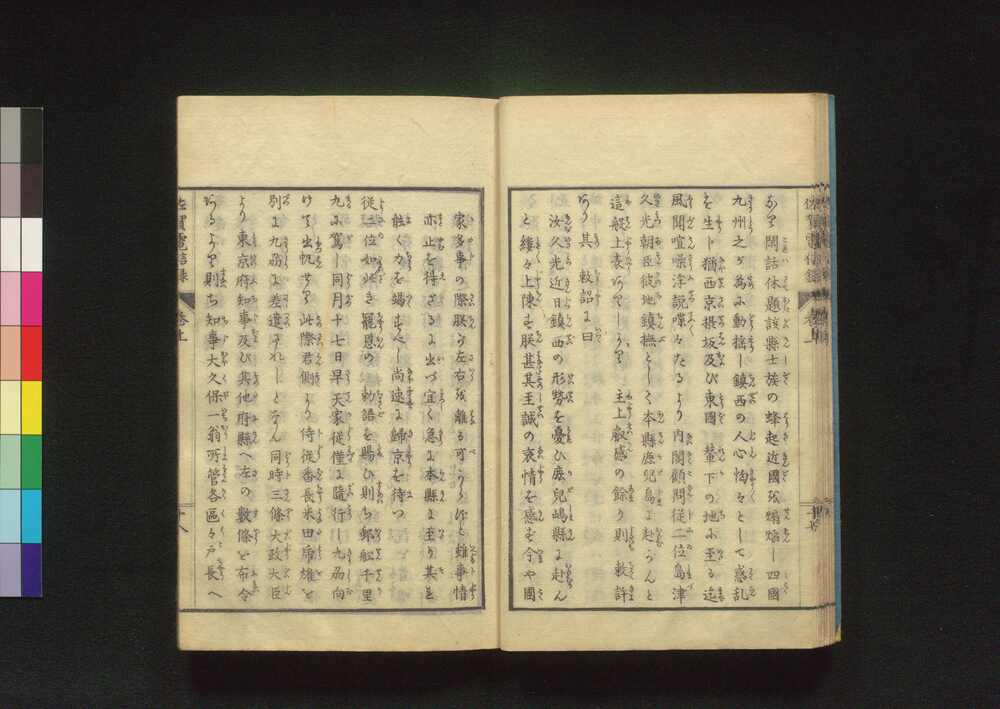 あり閑話休題該縣士族の蜂起近國を煽焔し四國
九州之が為に動揺し鎮西の人心恟々として惑乱
を生ト猶西京摂坂及び東國輦下の地に至る迄
風聞喧噪浮説喋々たるより内閣顧問従二位島津
久光朝臣彼地鎮撫として本縣鹿児島に赴かんと
這般上表ありしかバ主上叡感の餘り則敕許
あり其敕詔に曰
汝久光近日鎮西の形勢を憂ひ鹿児嶋縣に赴ん
と縷々上陳す朕甚其至誠の衷情を感ず今や國
家多事の際朕が左右を離る可からずと雖事情
亦止を得ざるに出づ宜く急に本縣に至り其
能く力を竭すべし尚速に歸京を待つ
従二位如此き寵恩の勅語を賜ひ則ち郵舩千里
九に駕し同月十七日早天家従僅に随行し九州向
けて出帆せり此際君側より侍従番長米田席雄を
別に九州に差遣されしとなん同時三條大政大臣
より東京府知事及び其他府縣へ左の數條を布令
あるより則ち知事大久保一翁所管各區々戸長へ
佐賀電信録
巻上
十八